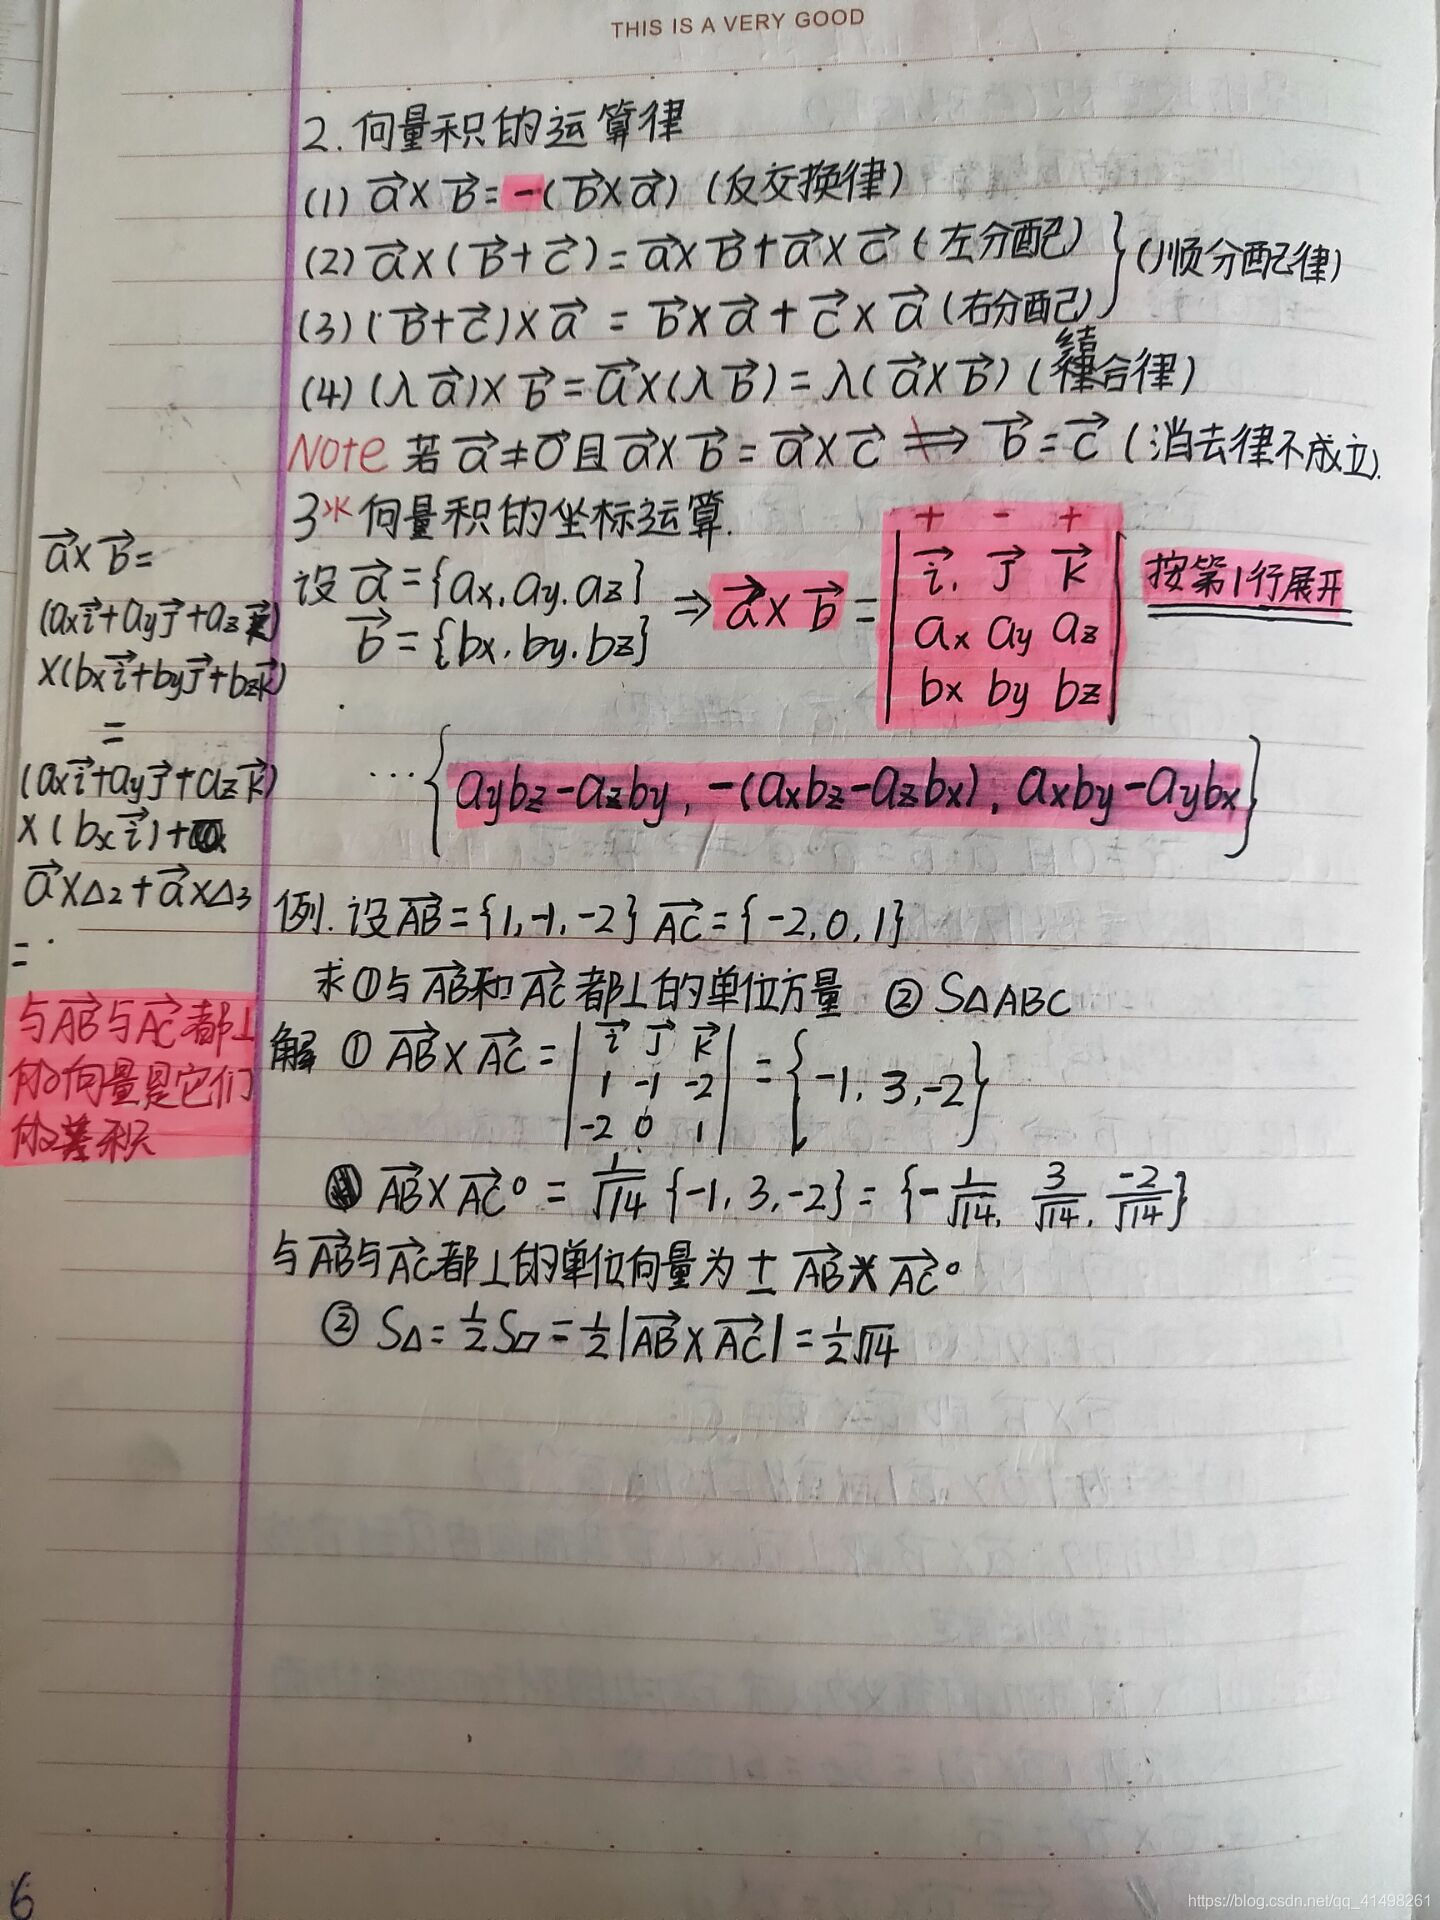 THIS IS A VERY GOOD
2. 向量积的运算律
(1) a⃗×b⃗=-(b⃗×a⃗) (反交换律)
(2) a⃗×(b⃗+c⃗)=a⃗×b⃗+a⃗×c⃗ (左分配)
(顺分配律)
(3) (b⃗+c⃗)×a⃗ = b⃗×a⃗+c⃗×a⃗ (右分配)
(4) (λa⃗)×b⃗=a⃗×(λb⃗)=λ(a⃗×b⃗) (结合律)
Note 若a⃗≠0⃗且a⃗×b⃗=a⃗×c⃗ ⇏ b⃗=c⃗ (消去律不成立).
3* 向量积的坐标运算.
+ - +
设a⃗={ax, ay, az}
b⃗={bx, by, bz}
⇒ a⃗×b⃗ = | i⃗, j⃗ k⃗ |
| ax ay az |
| bx by bz |
按第1行展开
… {aybz-azby, -(axbz-azbx), axby-aybx}
a⃗×b⃗=
(axi⃗+ayj⃗+azk⃗)
×(bxi⃗+byj⃗+bzk⃗)
=
(axi⃗+ayj⃗+azk⃗)
×(bxi⃗)+
a⃗×Δ2+a⃗×Δ3
=
例. 设AB⃗={1,-1,-2} AC⃗={-2,0,1}
求①与AB⃗和AC⃗都⊥的单位方量 ② S△ABC
与AB⃗与AC⃗都⊥
的向量是它们
的差积
解 ① AB⃗×AC⃗= | i⃗ j⃗ k⃗ |
| 1 -1 -2 |
| -2 0 1 |
={-1, 3, -2}
AB⃗×AC⃗° = 1/√14 {-1, 3, -2}={-1/√14, 3/√14, -2/√14}
与AB⃗与AC⃗都⊥的单位向量为± AB⃗×AC⃗°
② S△=1/2S▱=1/2|AB⃗×AC⃗|=1/2√14
6
https://blog.csdn.net/qq_41498261